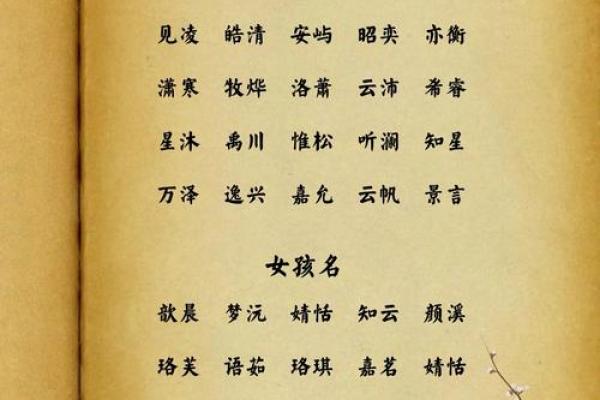 见凌 皓清 安屿 昭奕 亦衡
潇寒 牧烨 洛萧 云沛 希睿
星沐 禹川 惟松 听澜 知星
万泽 逸兴 嘉允 云帆 景言
女孩名
歆晨 梦沅 婧恬 知云 颜溪
珞芙 语茹 珞琪 嘉茗 婧恬